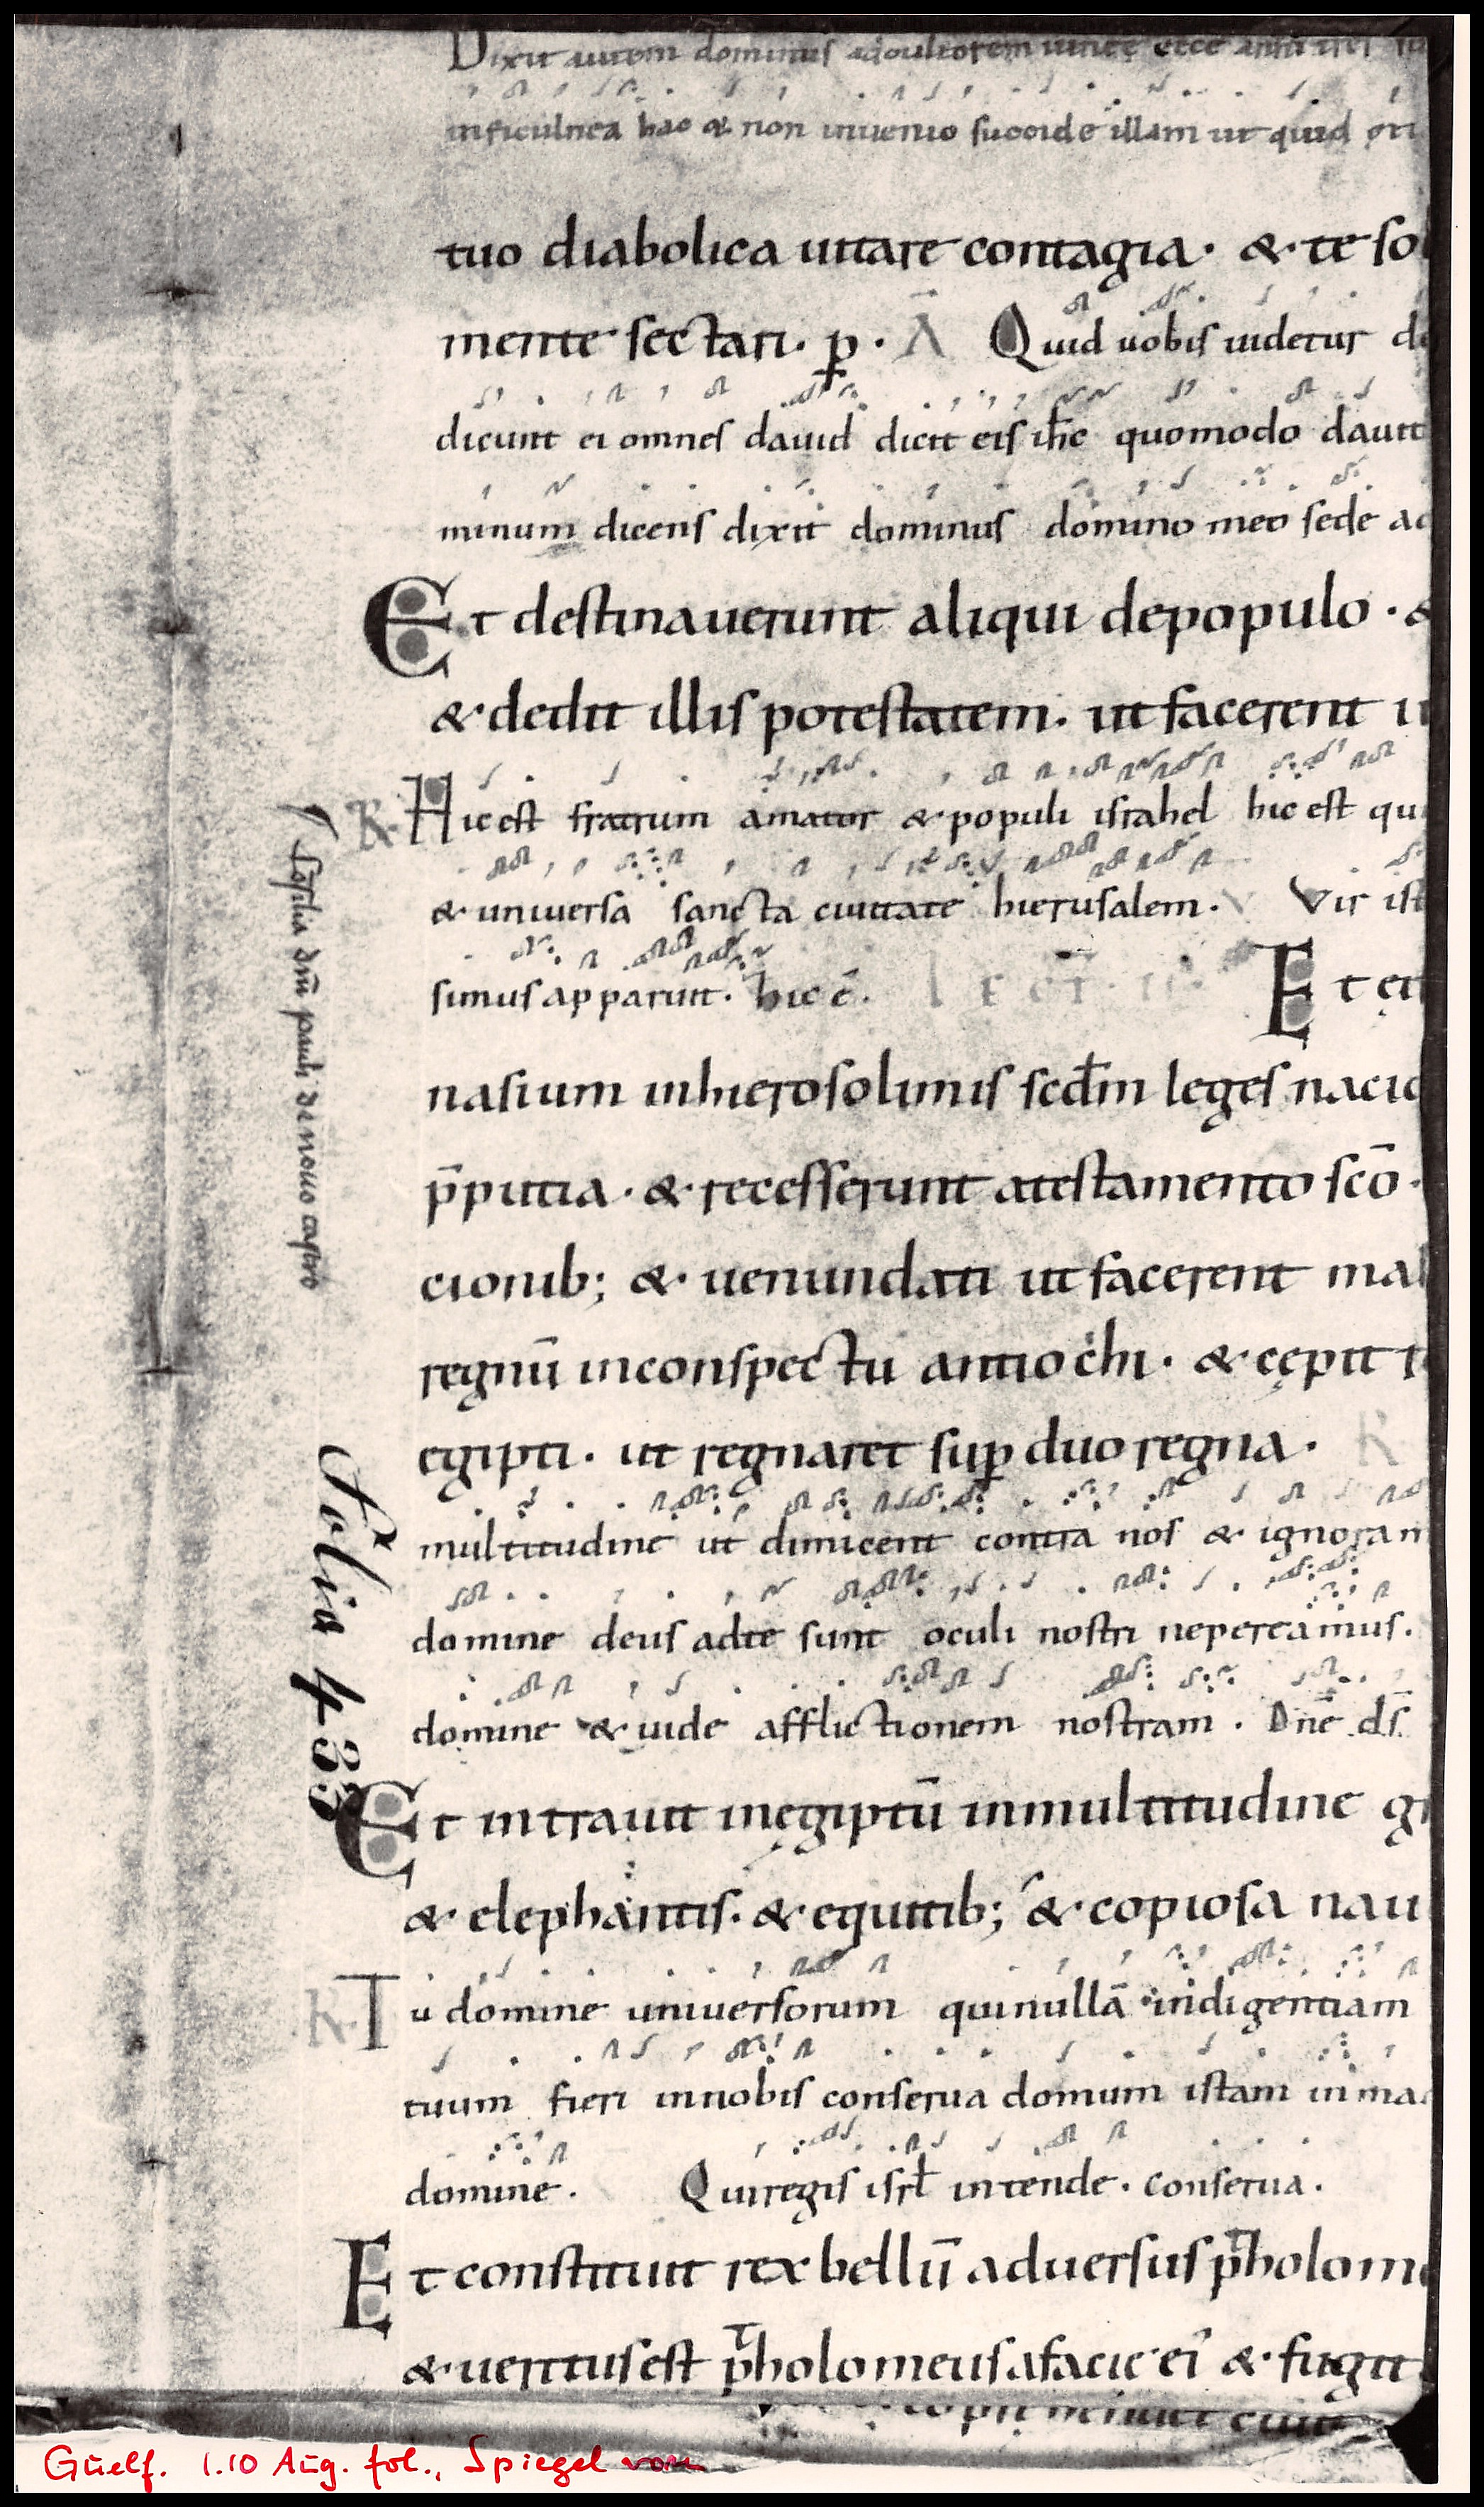 Dixit autem dominus ad cultorem uineę ecce anni tres su
in ficulnea hac & non inuenio succide illam ut quid
tuo diabolica uitare contagia · & te sol
mente sectari · ꝑ · A Quid uobis uidetur de
dicunt ei omnes dauid dicit eis ih̄c quomodo dauit
minum dicens dixit dominus domino meo sede ad
Et destinauerunt aliqui depopulo · &
& dedit illis potestatem · ut facerent iu
R. Hic est fratrum amator & populi israhel hic est qui
& uniuersa sancta ciuitate hierusalem · V Vir ist
simus apparuit · hic ē . Et ędi
nasium inhierosolimis scd̄m leges nacio
p̄putia · & recesserunt atestamento scō ·
cionib; & uenundati ut facerent mal
regnū inconspectu antiochi · & cępit t
egipti · ut regnaret suꝑ duo regna · R
multitudine ut dimicent contra nos & ignoram
domine deus adte sunt oculi nostri nepereamus .
domine & uide afflictionem nostram . Dn̄e ds̄
Et intrauit inęgiptū inmultitudine gr
& elephantis · & equitib; & copiosa naui
R. Tu domine uniuersorum quinullā indigentiam
tuum fieri innobis conserua domum istam inmac
domine . Qui regis isrl̄ intende . conserua .
Et constituit rex bellū aduersus ptholome
& ueritus est ptholomeus afacie ei' & fugit
dn̄i pauli de nouo castro
Folia 433
Guelf. 1.10 Aug. fol., Spiegel vorn